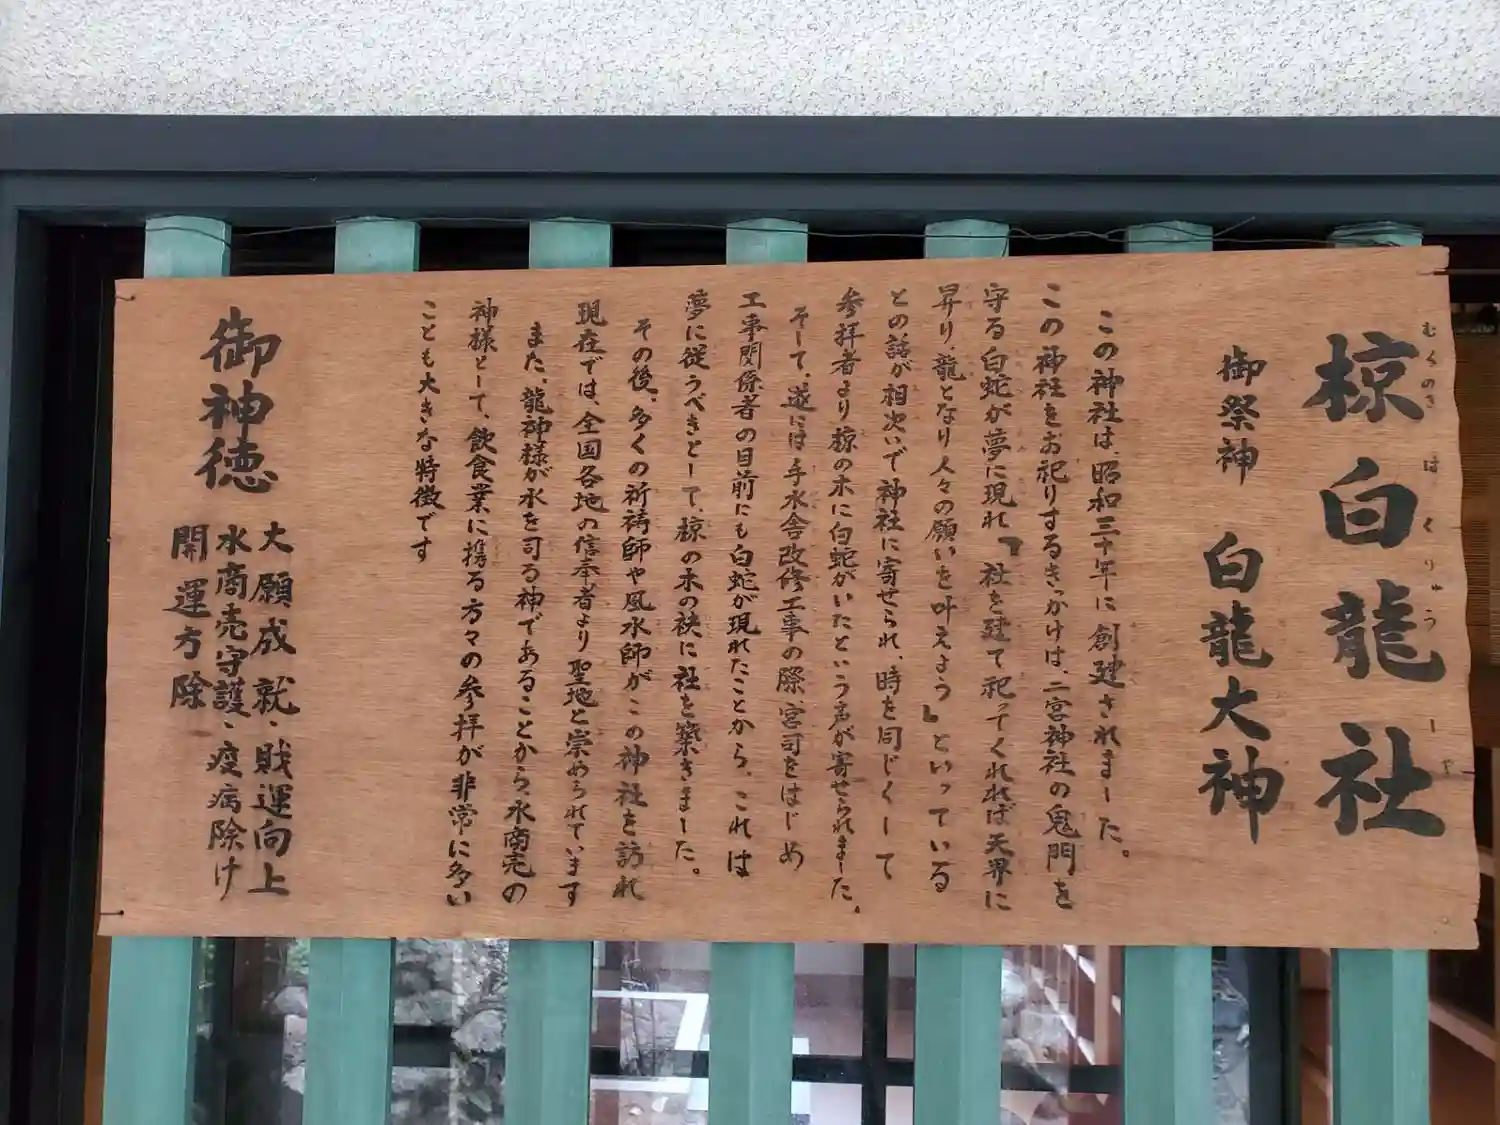 椋白龍社
むくのき はくりゅうしゃ
御祭神 白龍大神
この神社は、昭和三十年に創建されました。
この神社をお祀りするきっかけは、二宮神社の鬼門を
守る白蛇が夢に現れ『社を建て祀ってくれれば天界に
昇り、龍となり人々の願いを叶えよう』といっている
との話が相次いで神社に寄せられ、時を同じくして
参拝者より椋の木に白蛇がいたという声が寄せられました。
そして、遂には手水舎改修工事の際、宮司をはじめ
工事関係者の目前にも白蛇が現れたことから、これは
夢に従うべきとして、椋の木の袂に社を築きました。
その後、多くの祈祷師や風水師がこの神社を訪れ
現在では、全国各地の信奉者より聖地と崇められています
また、龍神様が水を司る神であることから水商売の
神様として、飲食業に携る方々の参拝が非常に多い
ことも大きな特徴です
御神徳
大願成就・財運向上
水商売守護・疫病除け
開運方除